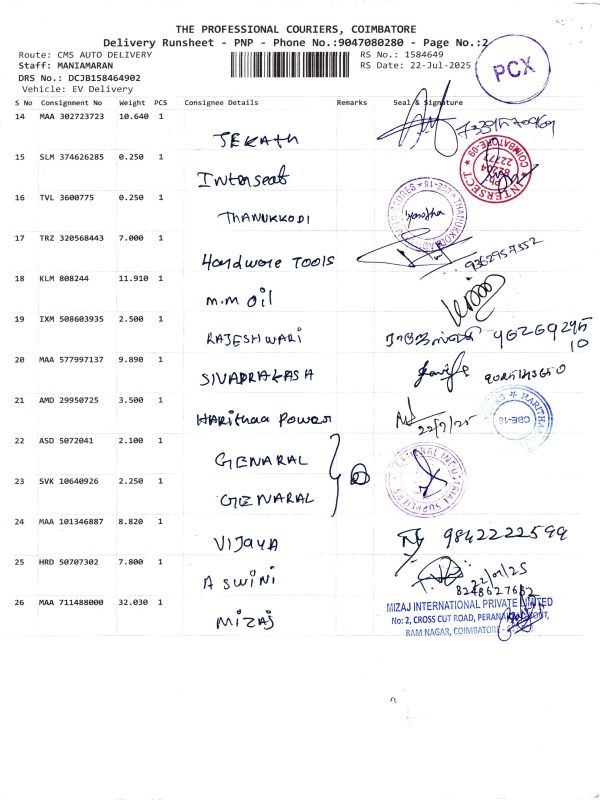 THE PROFESSIONAL COURIERS, COIMBATORE
Delivery Runsheet - PNP - Phone No.:9047080280 - Page No.:2
Route: CMS AUTO DELIVERY
RS No.: 1584649
Staff: MANIAMARAN
RS Date: 22-Jul-2025
DRS No.: DCJB158464902
Vehicle: EV Delivery
PCX
S No Consignment No Weight PCS Consignee Details Remarks Seal & Signature
14 MAA 302723723 10.640 1
15 SLM 374626285 0.250 1
Interseat
INTERSECT
COIMBATORE-09
16 TVL 3600775 0.250 1
THANUKKODI
17 TRZ 320568443 7.000 1
Hardware TOOLS
9362957552
18 KLM 808244 11.910 1
M.M Oil
19 IXM 508603935 2.500 1
RAJESHWARI
20 MAA 577997137 9.890 1
SIVAPRAKASA
21 AMD 29950725 3.500 1
Harithaa Power
22/7/25
HARITHAA
CBE-18
22 ASD 5072041 2.100 1
GENARAL
23 SVK 10640926 2.250 1
GENARAL
INDUSTRIAL SUPPLIERS
24 MAA 101346887 8.820 1
VIJAYA
9842222599
25 HRD 50707302 7.800 1
ASWINI
22/07/25
8248627682
26 MAA 711488000 32.030 1
MIZAJ
MIZAJ INTERNATIONAL PRIVATE LIMITED
No: 2, CROSS CUT ROAD,
RAM NAGAR, COIMBATORE